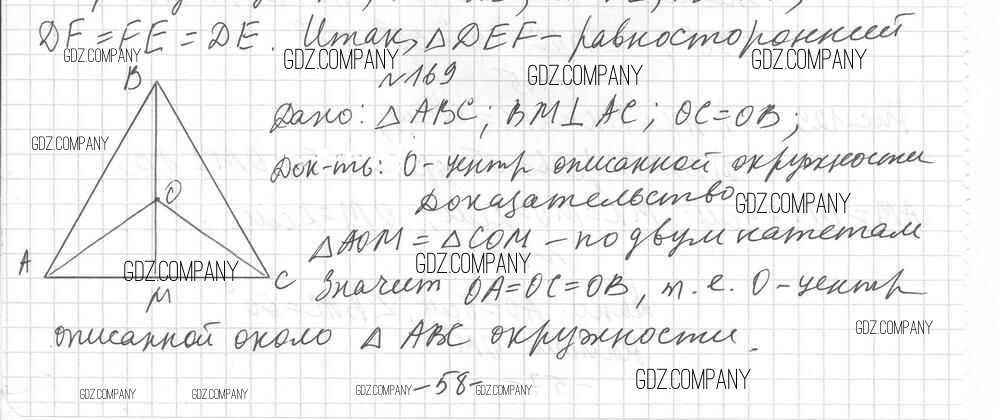 DF = FE = DE. Итак, △DEF – равносторонний
N 169
Дано: △ABC; BM⊥AC; OC=OB;
Док-ть: O-центр описанной окружности
Доказательство
△AOM = △COM – по двум катетам
Значит OA=OC=OB, т.е. O-центр
описанной около △ ABC окружности.
B
O
A
C
M
–58–
GDZ.COMPANY
GDZ.COMPANY
GDZ.COMPANY
GDZ.COMPANY
GDZ.COMPANY
GDZ.COMPANY
GDZ.COMPANY
GDZ.COMPANY
GDZ.COMPANY
GDZ.COMPANY
GDZ.COMPANY
GDZ.COMPANY
GDZ.COMPANY
GDZ.COMPANY